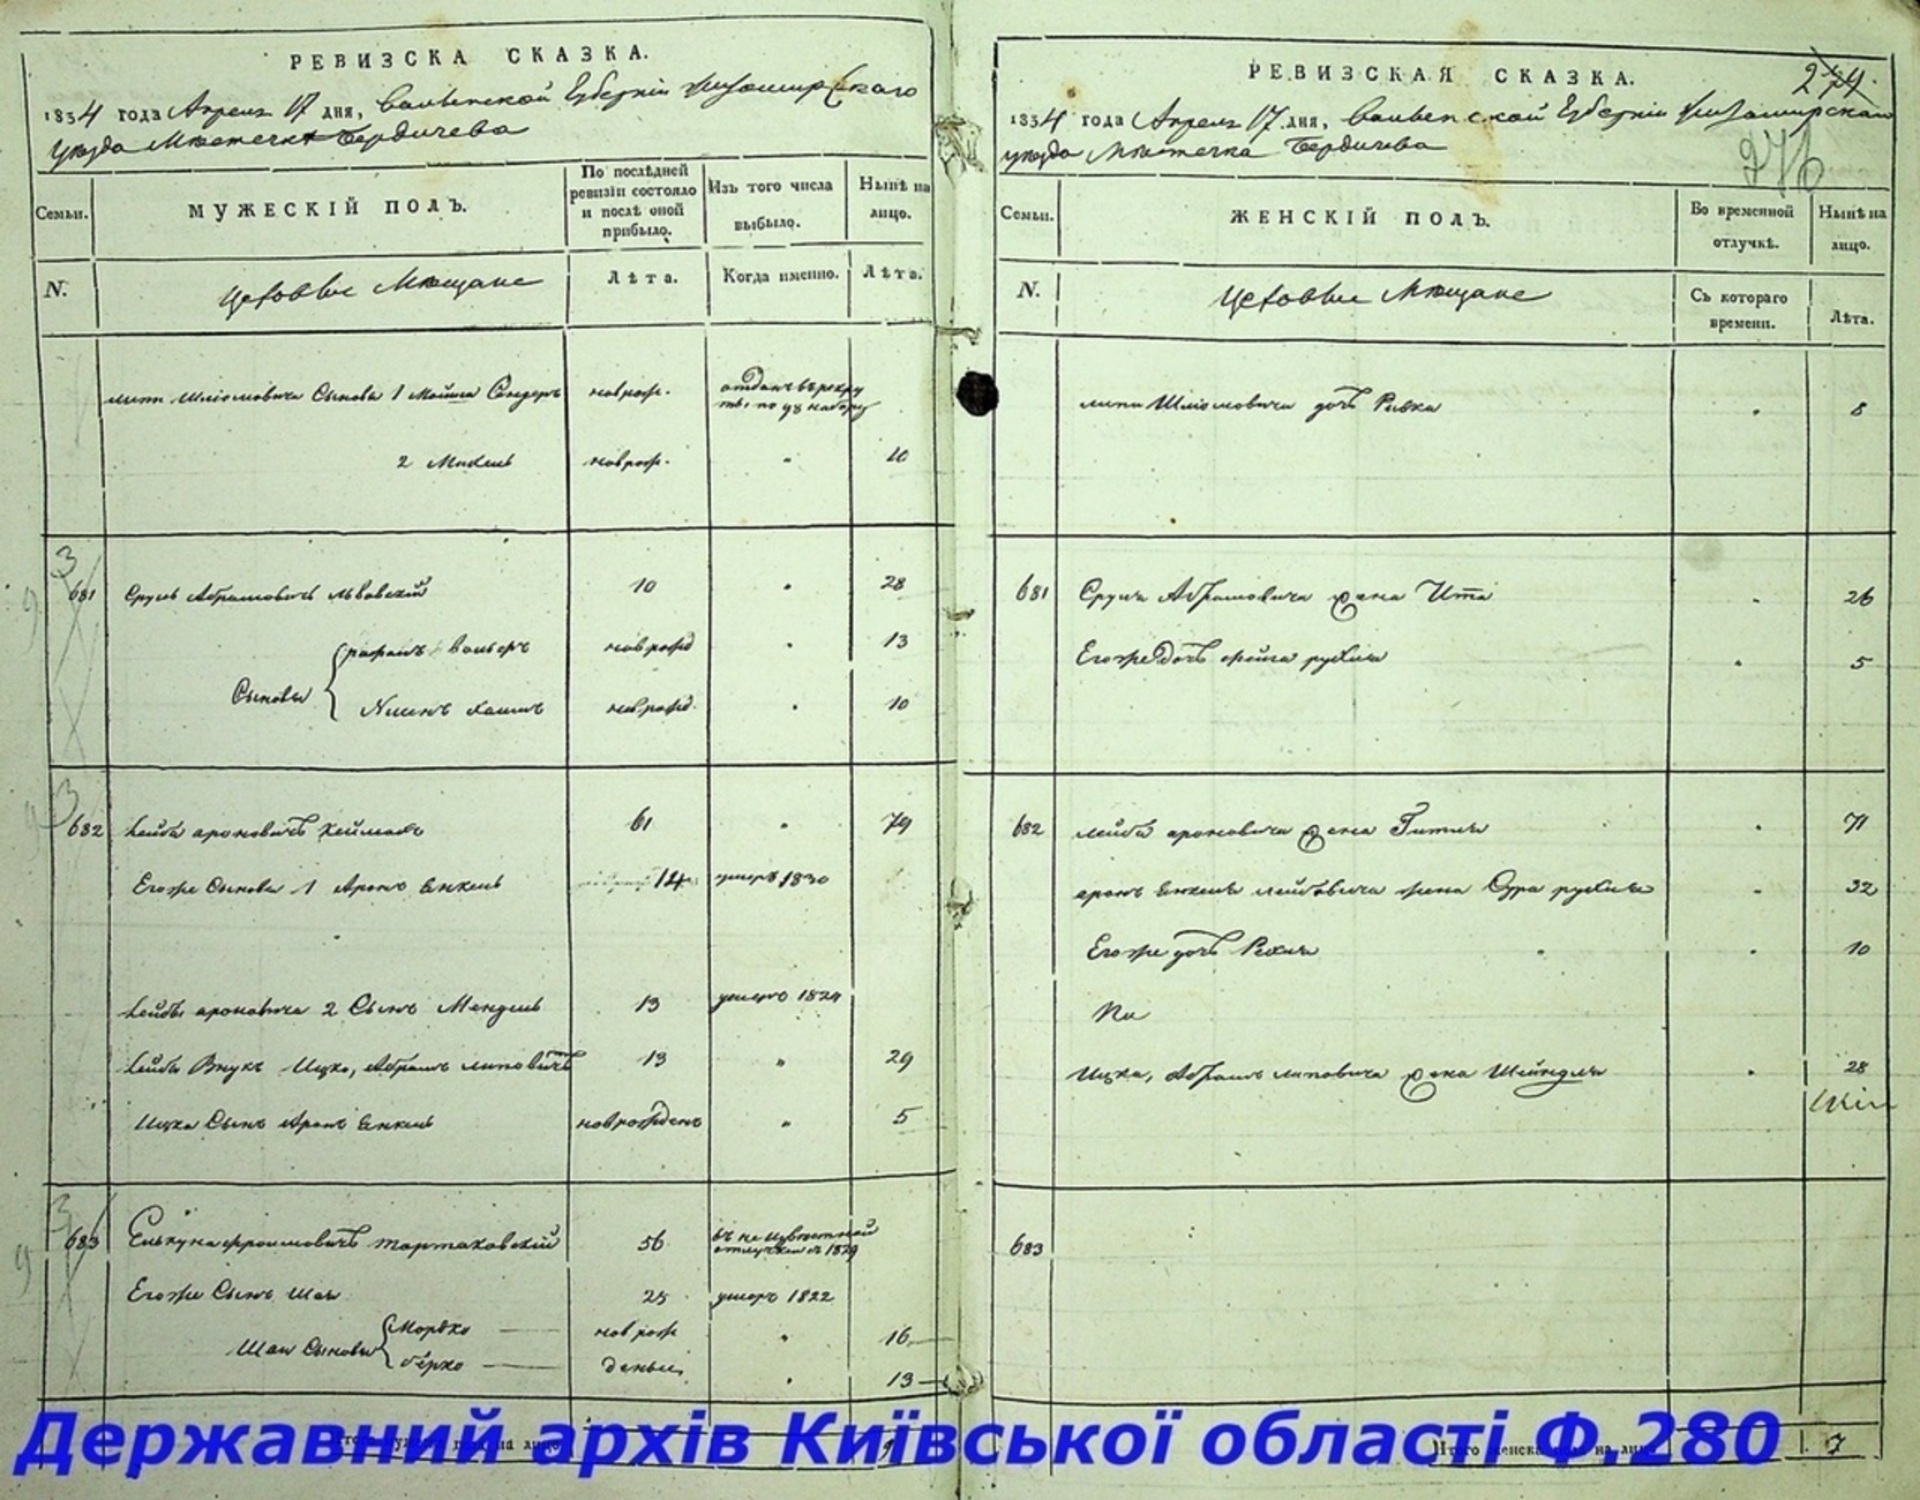 РЕВИЗСКА СКАЗКА.
1834 года Апреля 17 дня, Волынской Губерніи Житомирскаго
уезда Местечка Бердичева
Семьи.
МУЖЕСКІЙ ПОЛЪ.
По послѣдней ревизіи состояло и послѣ оной прибыло.
Изъ того числа выбыло.
Нынѣ на лицо.
N.
Цеховые Мещане
Лѣта.
Когда именно.
Лѣта.
липи Шліомовича Сыновья 1 Мошко Сендеръ новрож. отданъ въ рекруты, по 98 набору
2 Михель новрож. 10
681 Сруль Абрамовичъ Львовскій 10 28
Сыновья
рафаилъ Вольфъ новрожд 13
Нисонъ Хаимъ новрожд. 10
682 Лейба ароновичъ 61 79
Егоже Сыновья 1 Аронъ Янкель 14 умеръ 1830
Лейбы ароновича 2 Сынъ Мендель 13 умеръ 1824
Лейбы Внукъ Ицко, Абрамъ липовичъ 13 29
Ицка Сынъ Аронъ Янкель новрожденъ 5
683 фроимовичъ тартаковскій 56 въ неизвестной отлучки съ 1829
Егоже Сынъ Шая 25 умеръ 1822
Шаи Сыновья
Мордко новрож 16
берко деныи 13
РЕВИЗСКАЯ СКАЗКА.
274.
1834 года Апреля 17 дня, Волынской Губерніи Житомирскаго
уезда Местечка Бердичева
276
Семьи.
ЖЕНСКІЙ ПОЛЪ.
Во временной отлучкѣ.
Нынѣ на лицо.
N.
Цеховые Мещане
Съ котораго времени.
Лѣта.
липи Шліомовича дочь Ривка 8
681 Сруля Абрамовича жена Ита 26
Егоже дочь фейга рухля 5
682 лейбы ароновича жена Гитля 71
аронъ Янкеля лейбовича жена Сура рухля 32
Егоже дочь Рехля 10
Ицка, Абрамъ липовича жена Шейндля 28
683
Итого женска на лицо 7
Державний архів Київської області Ф.280